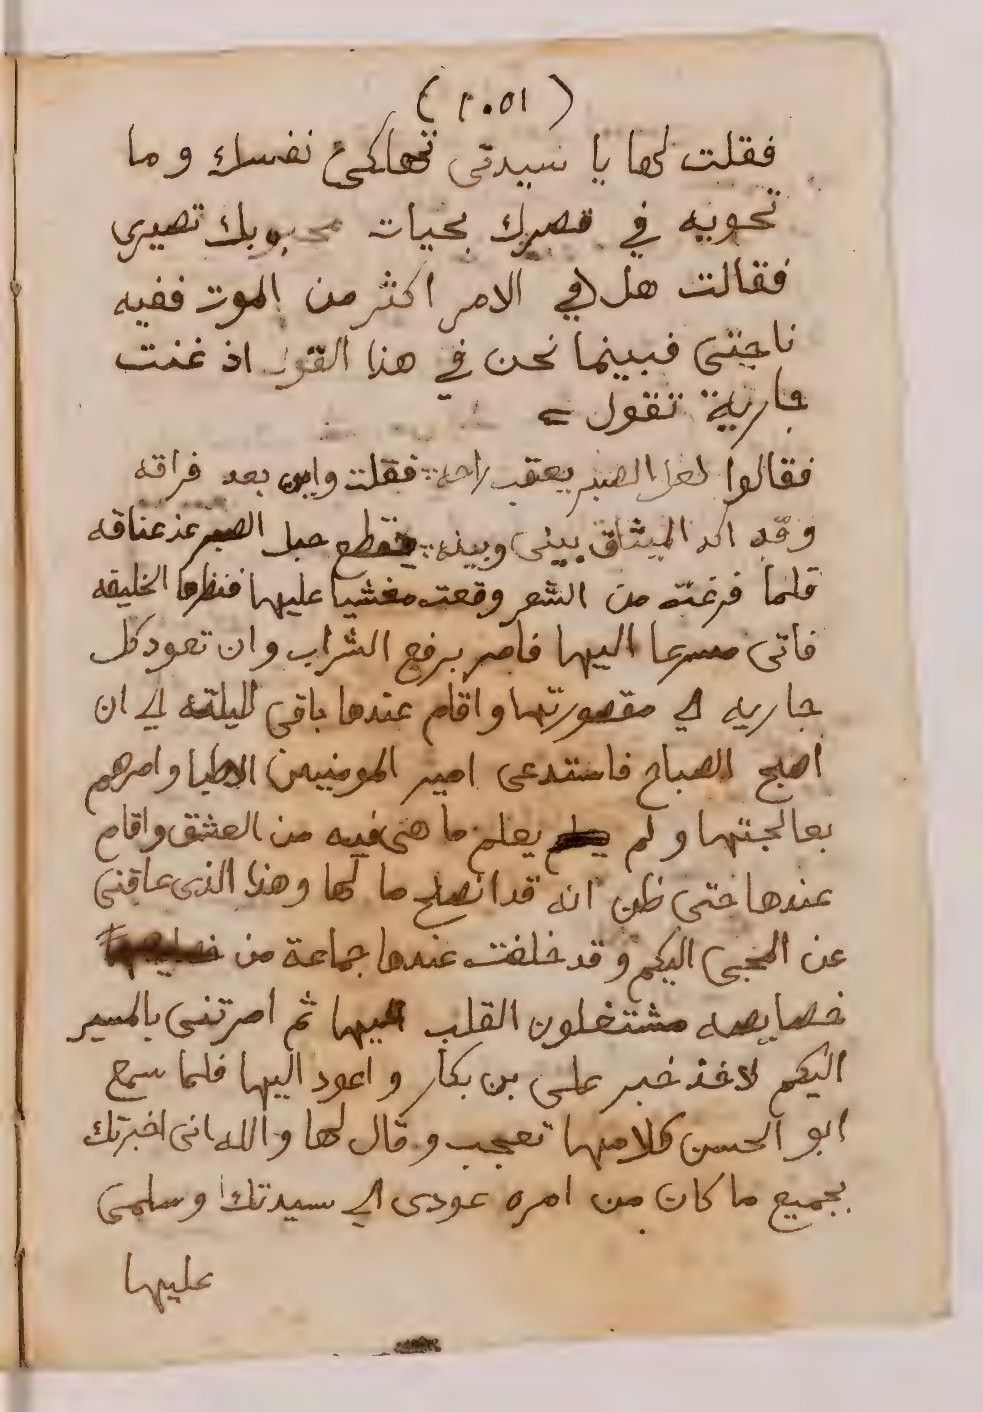 (١٠٥١)
فقلت لها يا سيدتي تهلكي نفسك وما
تحويه في قصرك بحيات محبوبك تصيري
فقالت هل في الامر اكثر من الموت ففيه
ناجتى فبينما نحن في هذا القول اذ غنت
جارية تقول
فقالوا لعل الصبر يعقب راحه فقلت واين بعد فراقه
وقد اكد الميثاق بينى وبينه بقطع حبل الصبر عند عناقه
فلما فرغت من الشعر وقعت مغشيا عليها فنظرها الخليفه
فاتى مسرعا اليها فامر برفع الشراب وان تعود كل
جاريه الي مقصورتها واقام عندها باقى الليلته الي ان
اصبح الصباح فاستدعى امير المومنيين الاطبا وامرهم
بعالجتها ولم يعلم ما هى فيه من العشق واقام
عندها حتى ظن انه قد انصلح ما لها وهذا الذى عاقنى
عن المجىى اليكم وقد خلفت عندها جماعة من
خصايصه مشتغلون القلب اليها ثم امرتنى بالمسير
اليكم لاخذ خبر على بن بكار واعود اليها فلما سمع
ابو الحسن كلامها تعجب وقال لها والله انى اخبرتك
بجميع ما كان من امره عودى الي سيدتك وسلمى
عليها